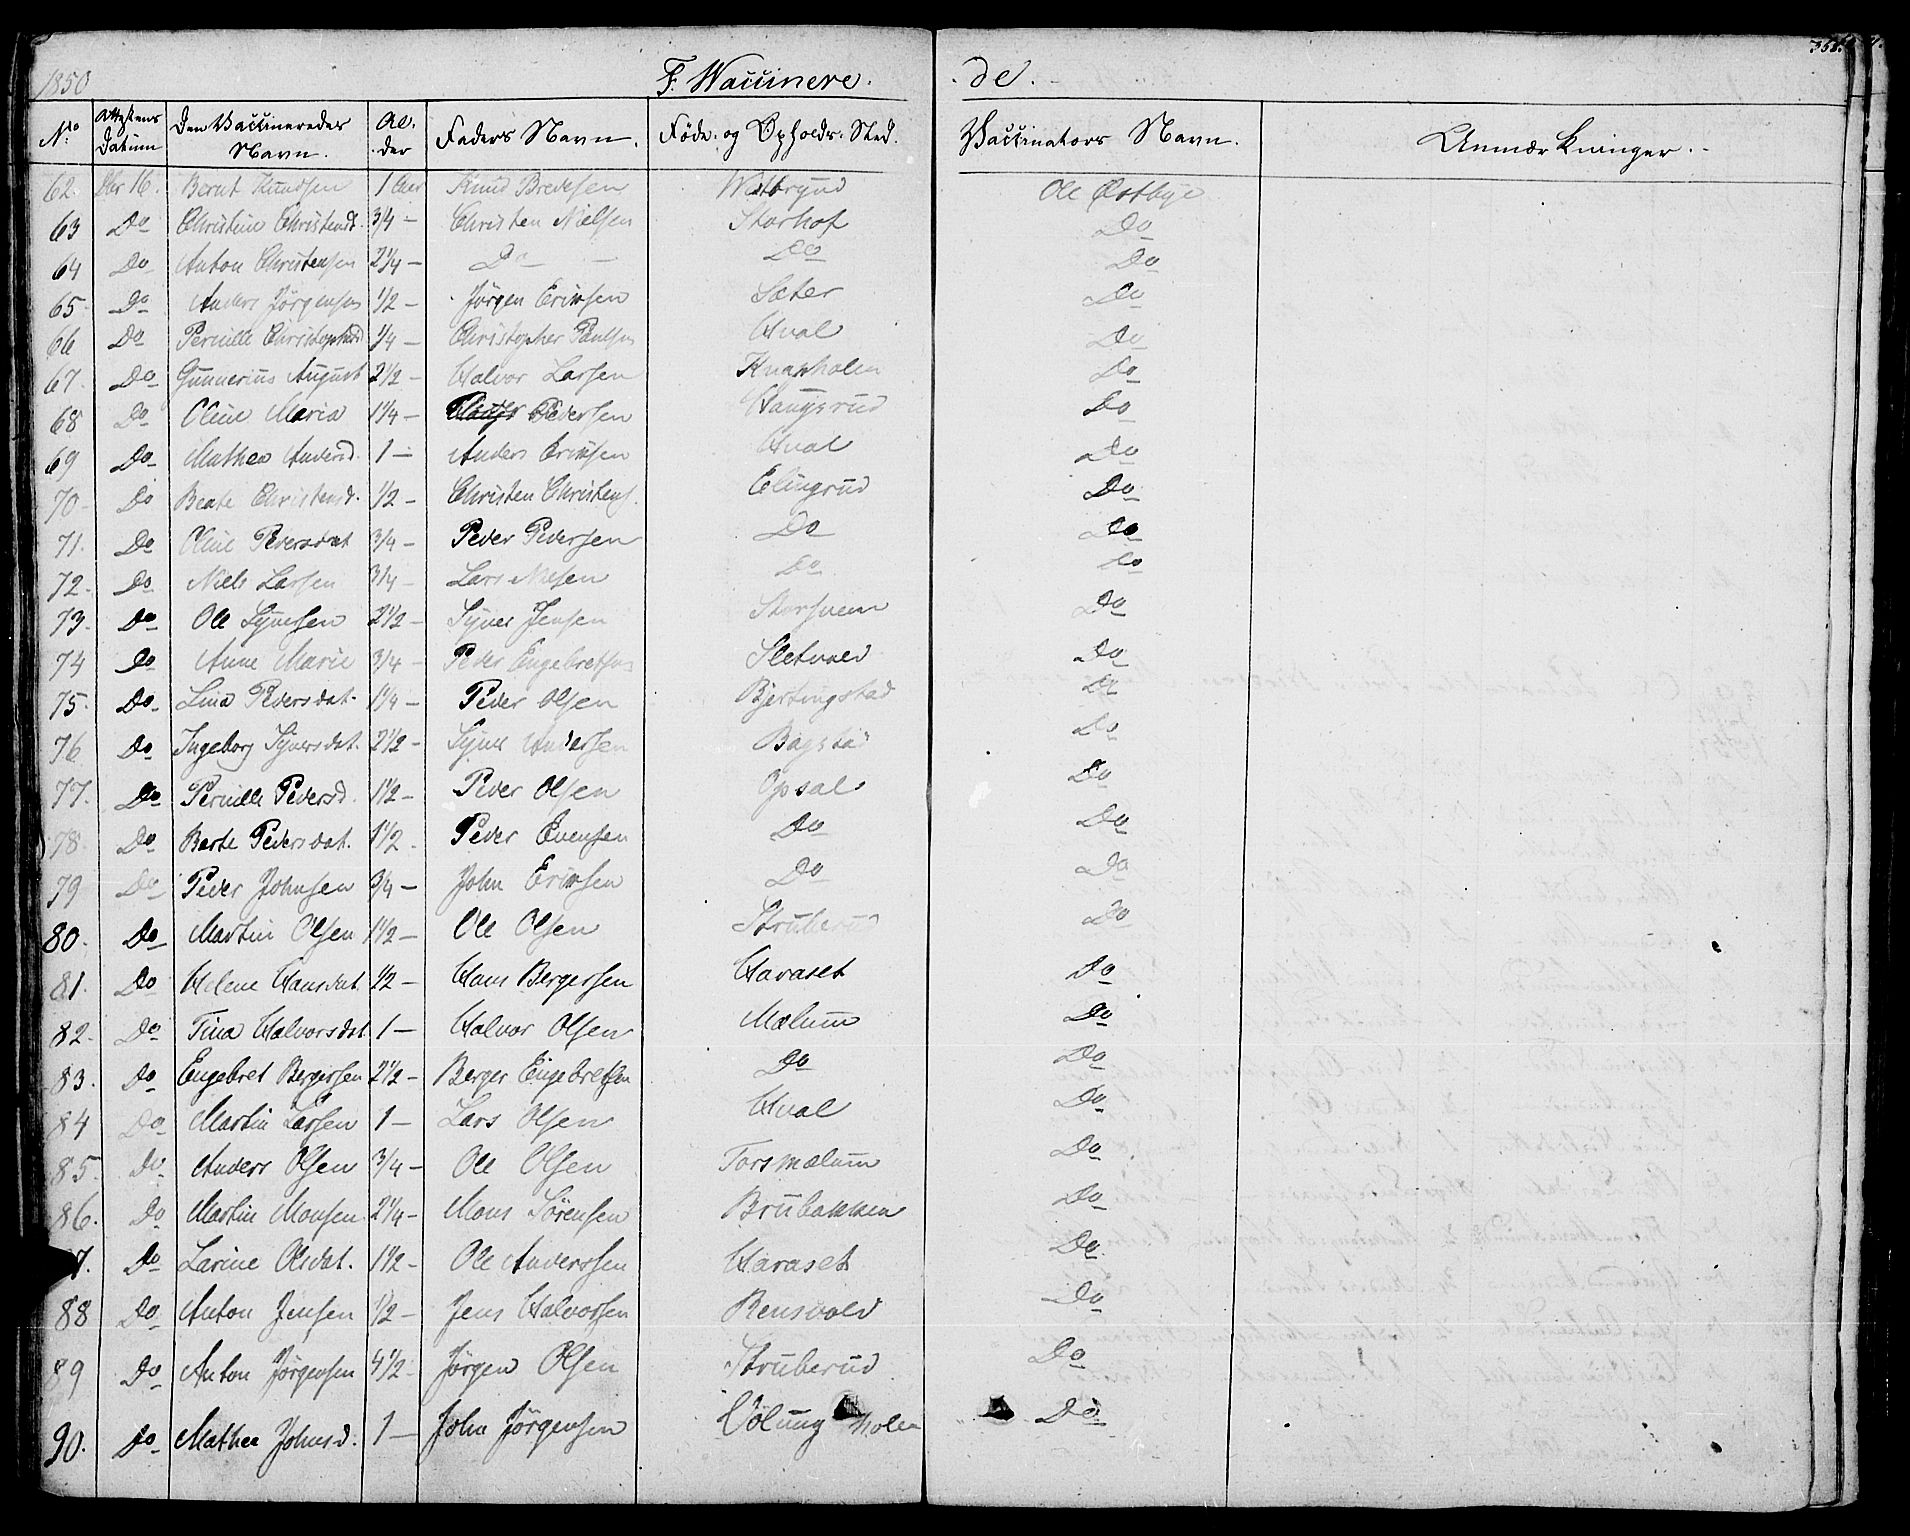 1850 F. Waccinere. . de. 358.
No Attestens Datum Den Vaccineredes Navn. Al. der Faders Navn. Føde. og Opholds. Sted. Vaccinators Navn. Anmærkninger.
62. Dbr 16. Bernt Knudsen 1 Aar Knud Bredesen Ole Østbye
63 Do Christine Christensd. 3/4 — Christen Nielsen Storhof Do
64 Do Anton Christensen 2 1/4 — Do — Do Do
65. Do Anders Jørgensen 1/2 — Jörgen Eriksen Sæter Do
66 Do Pernille Christophersd 1/4 — Christopher Paulsen Hval Do
67. Do Gunnerius August 2 1/2 — Halvor Larsen Knapholen Do
68 Do Oline Maria 1 1/4 — Pedersen Haugsrud Do
69 Do Mathea Andersd. 1 — Anders Eriksen Hval Do
70 Do Beate Christensd. 1/2 — Christen Christens. Elingrud Do
71. Do Oline Pedersdat 3/4 — Peder Pedersen Do Do
72. Do Niels Larsen 3/4 — Lars Nilsen Do Do
73. Do Ole Syversen 2 1/2 — Syver Jensen Storsveen Do
74 Do Anne Marie 3/4 — Peder Engebretsen Sletvold Do
75. Do Lina Pedersdat. 1 1/4 — Peder Olsen Bjertingstad Do
76 Do Ingeborg Syversdat. 2 1/2 — Syver Andersen Bagstad Do
77. Do Pernille Pedersd. 1 1/2 — Peder Olsen Opsal Do
78. Do Berte Pedersdat. 1 1/2. Peder Evensen Do Do
79 Do Peder Johnsen 3/4 — John Eriksen Do Do
80. Do Martin Olsen 1 1/2 — Ole Olsen Struberud Do
81. Do Helene Hansdat. 1/2 — Hans Bergersen Haraset Do
82. Do Tina Halvorsdat 1 — Halvor Olsen Mælum Do
83. Do Engebret Bergersen 2 1/2 — Berger Engebretsen Do Do
84 Do Martin Larsen 1 — Lars Olsen Hval Do
85. Do Anders Olsen 3/4 — Ole Olsen Torsmælum Do
86. Do Martin Monsen 2 1/4 — Mons Sörensen Brubakken Do
7. Do Larine Olsdat. 1 1/2 — Ole Anderssen Haraset Do
88 Do Anton Jensen 1/2 — Jens Halvorsen Rensvold Do
89 Do Anton Jørgensen 4 1/2. Jörgen Olsen Struberud Do
90. Do Mathea Johnsd. 1 — John Jörgensen holen Do